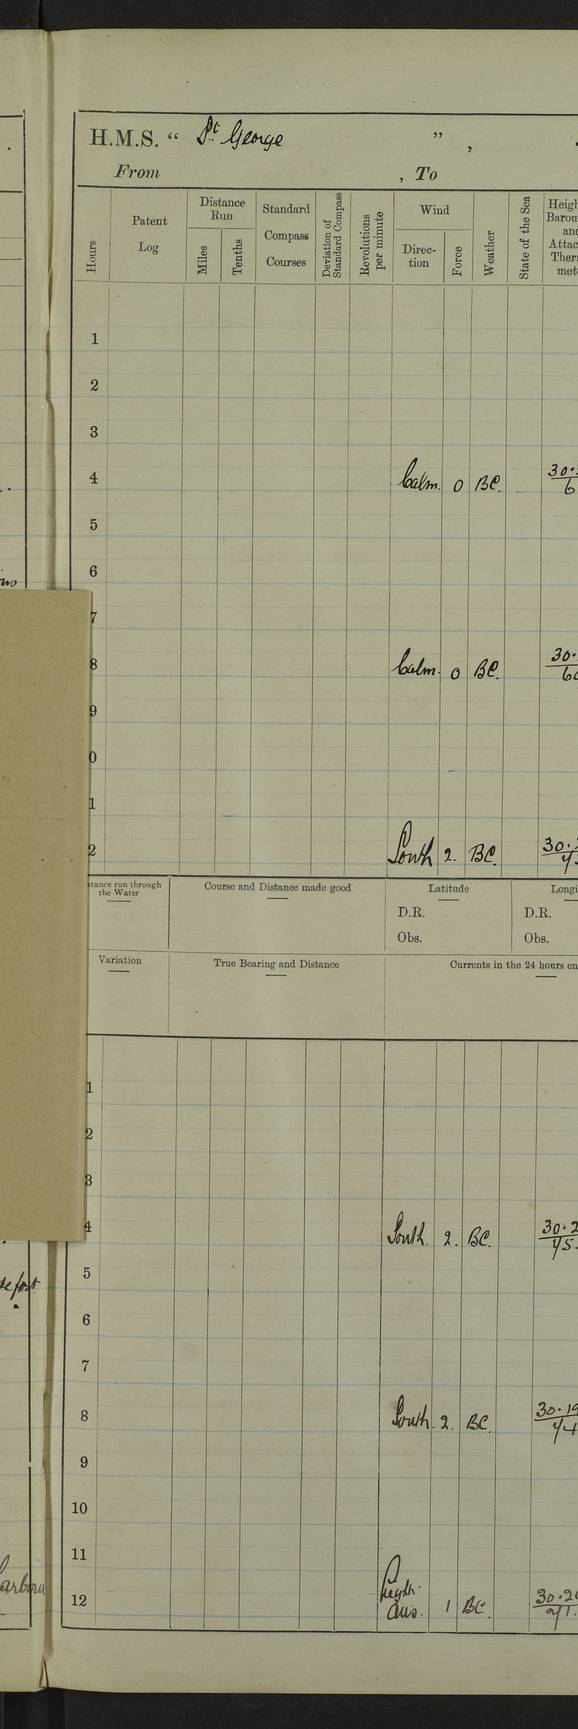 H.M.S. “ St George ” ,
From , To
Hours
Patent Log
Distance Run
Miles
Tenths
Standard Compass Courses
Deviation of Standard Compass
Revolutions per minute
Wind
Direc-tion
Force
Weather
State of the Sea
Heigh
Barom
and
Attac
Ther
met
1
2
3
4 Calm. 0 BC. 30.
6
5
6
7
8 Calm. 0 BC. 30.
60
9
0
1
2 South 2. BC. 30.
tance run through the Water
Course and Distance made good
Latitude
Longi
D.R. D.R.
Obs. Obs.
Variation
True Bearing and Distance
Currents in the 24 hours en
1
2
3
4 South. 2. BC. 30.2
75.
5
6
7
8 South. 2. BC. 30.19
74
9
10
11
12 Light airs. 1 BC. 30.20
71.